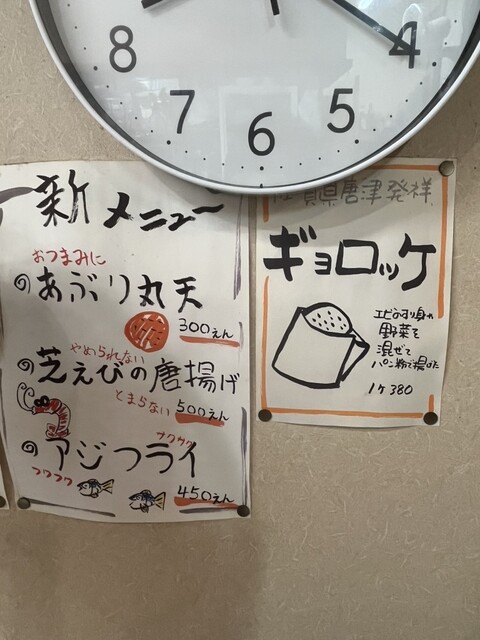 8
7
6
5
4
新メニュー
おつまみに
あぶり丸天
300えん
やめられない
芝えびの唐揚げ
とまらない
500えん
サクサク
アジフライ
フワフワ
450えん
賀県唐津発祥
ギョロッケ
エビのすり身や
野菜を
混ぜて
パン粉で揚げた
1ケ380